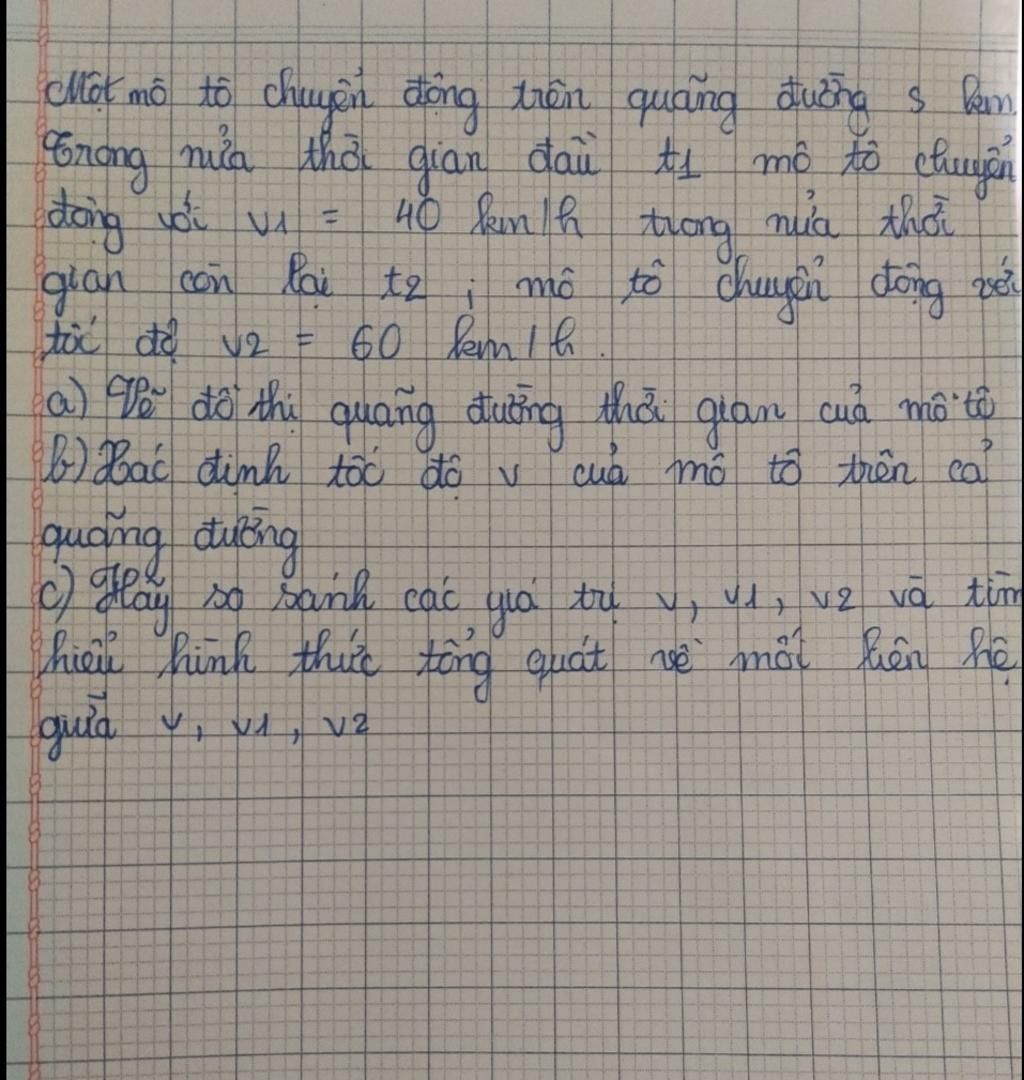 Một mô tô chuyển động trên quãng đường s km.
Trong nửa thời gian đầu t1 mô tô chuyển
động với v1 = 40 km/h trong nửa thời
gian còn lại t2, mô tô chuyển động với
tốc độ v2 = 60 km/h.
a) Vẽ đồ thị quãng đường thời gian của mô tô
b) Xác định tốc độ v của mô tô trên cả
quãng đường
c) Hãy so sánh các giá trị v, v1, v2 và tìm
hiểu hình thức tổng quát về mối liên hệ
giữa v, v1, v2